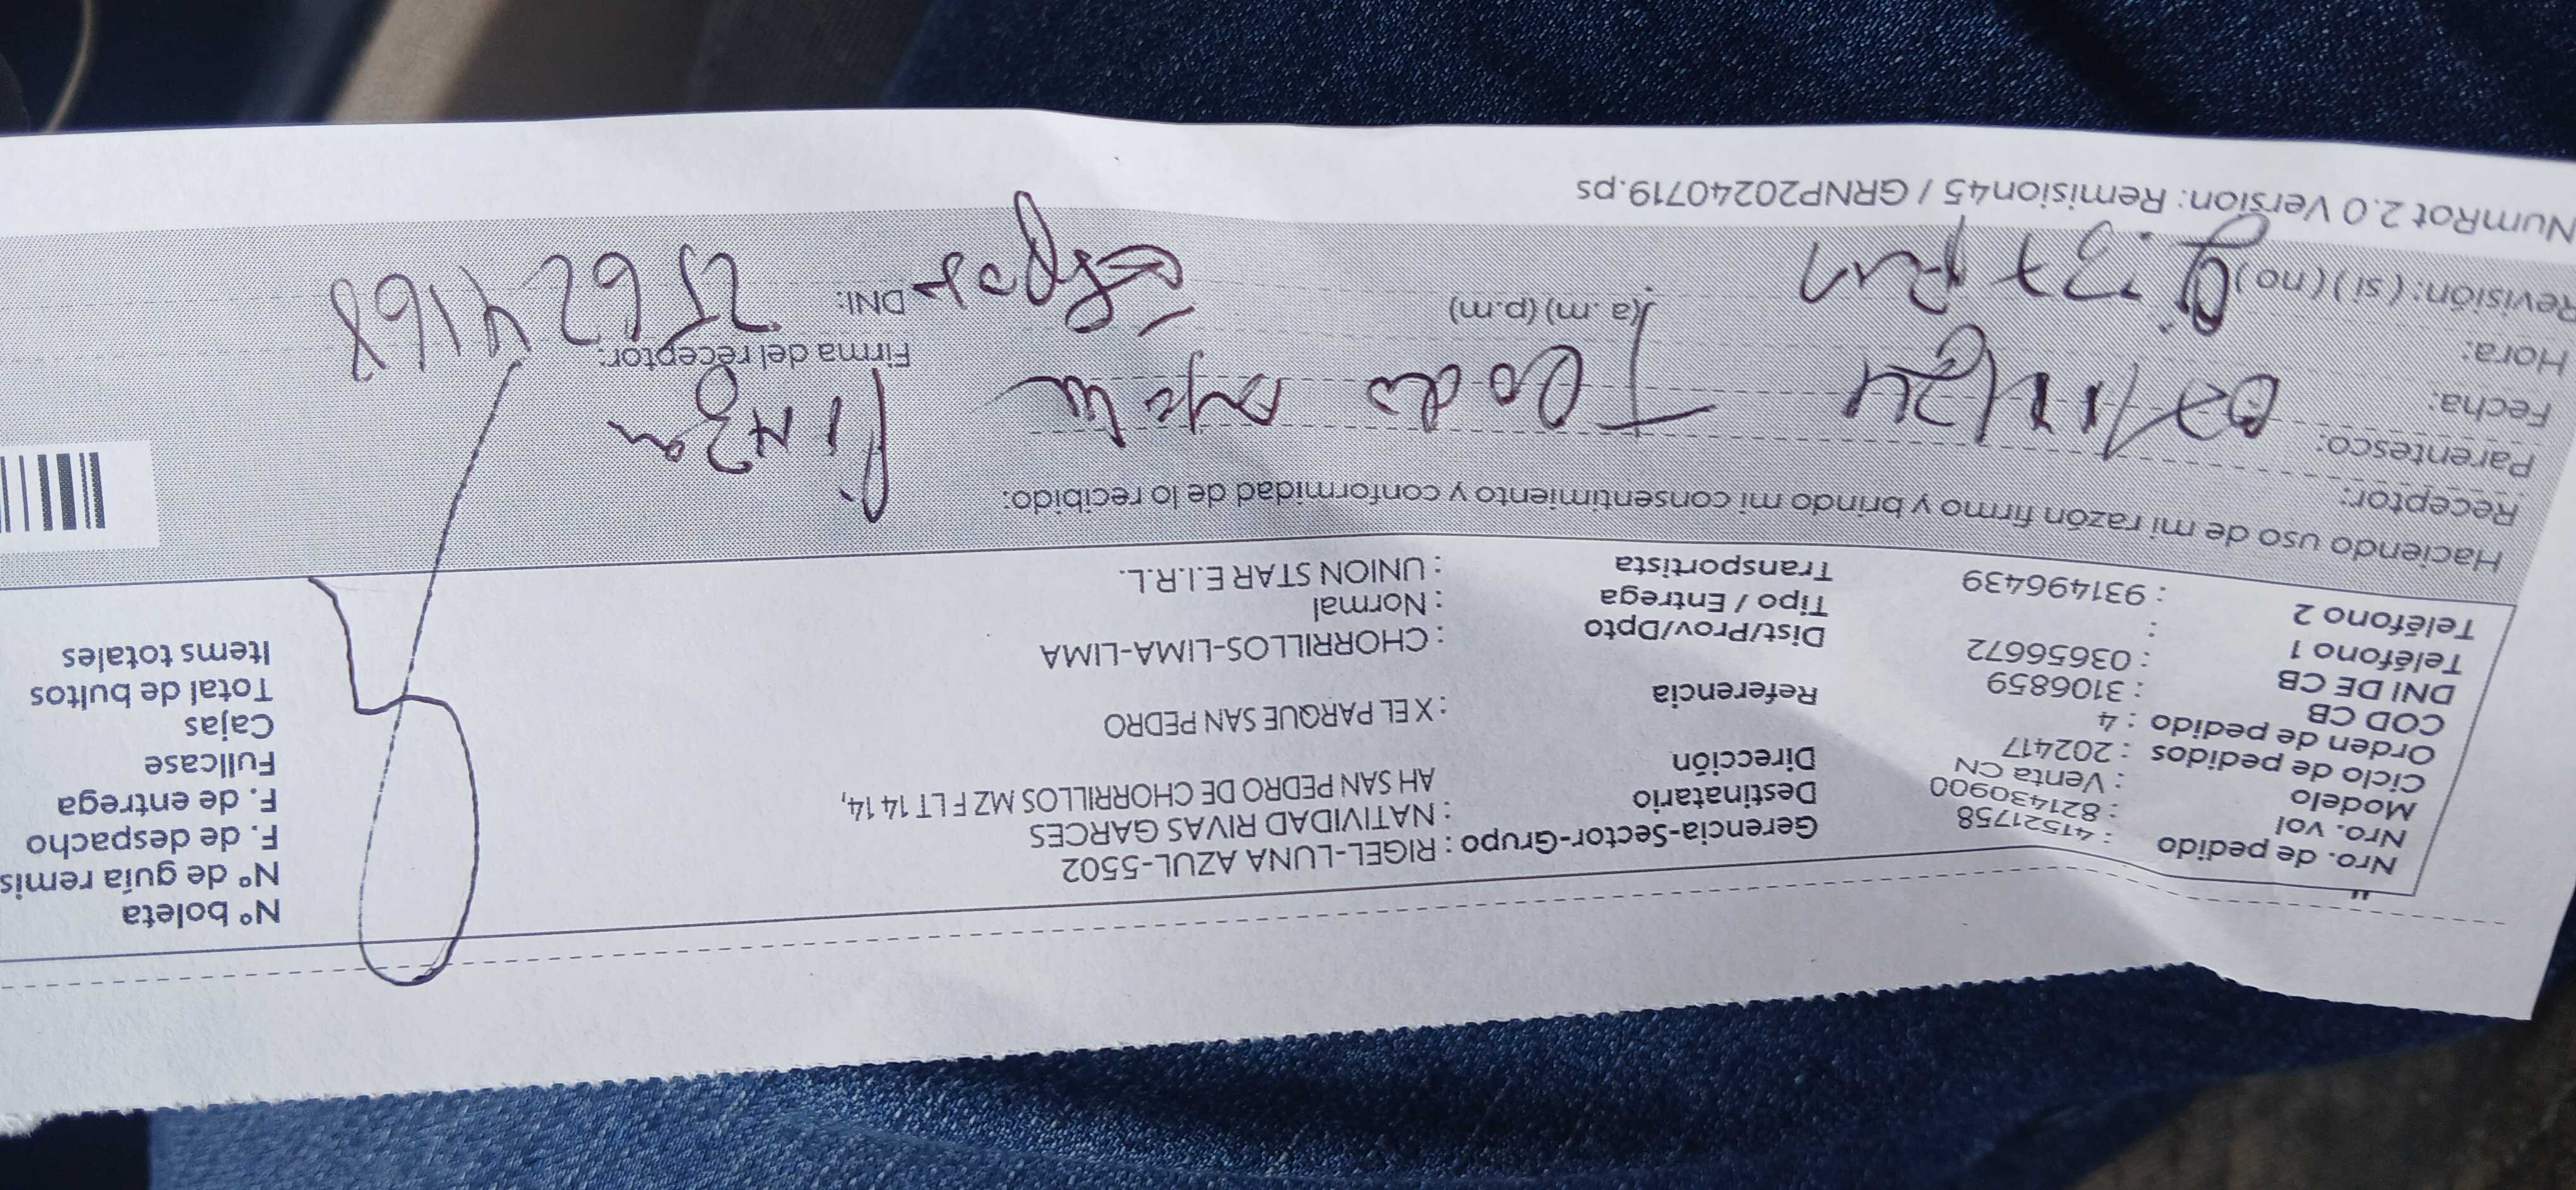 Nro. de pedido : 41521758
Nro. vol : 821430900
Modelo : Venta CN
Ciclo de pedidos : 202417
Orden de pedido : 4
COD CB : 3106859
DNI DE CB : 03656672
Teléfono 1 :
Teléfono 2 : 931496439
Gerencia-Sector-Grupo : RIGEL-LUNA AZUL-5502
Destinatario : NATIVIDAD RIVAS GARCES
Dirección AH SAN PEDRO DE CHORRILLOS MZ F LT 14 14,
Referencia : X EL PARQUE SAN PEDRO
Dist/Prov/Dpto : CHORRILLOS-LIMA-LIMA
Tipo / Entrega : Normal
Transportista : UNION STAR E.I.R.L.
N° boleta
N° de guía remis
F. de despacho
F. de entrega
Fullcase
Cajas
Total de bultos
Items totales
Haciendo uso de mi razón firmo y brindo mi consentimiento y conformidad de lo recibido:
Receptor:
Parentesco:
Fecha: 07/11/24
Hora: (a .m) (p.m)
Firma del receptor:
DNI: 25624168
Revisión: ( si ) ( no )
NumRot 2.0 Versión: Remision45 / GRNP20240719.ps